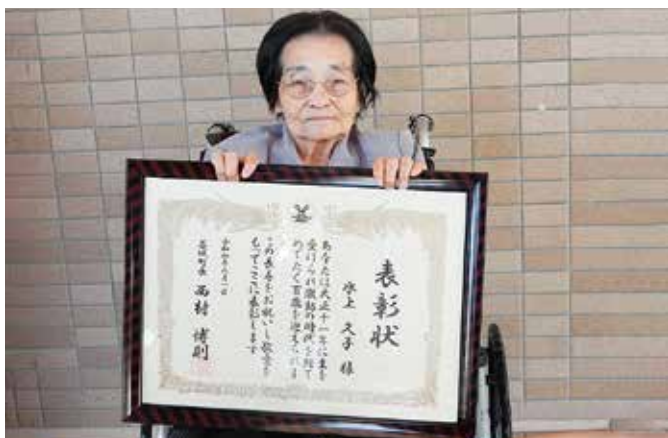 表彰状
水上 久子 様
あなたは大正十一年に生を
受けられ激動の時代を経て
めでたく百歳を迎えられま
この長寿をお祝いし敬意を
もってここに表彰します
月一日
益城町長 西村 博則